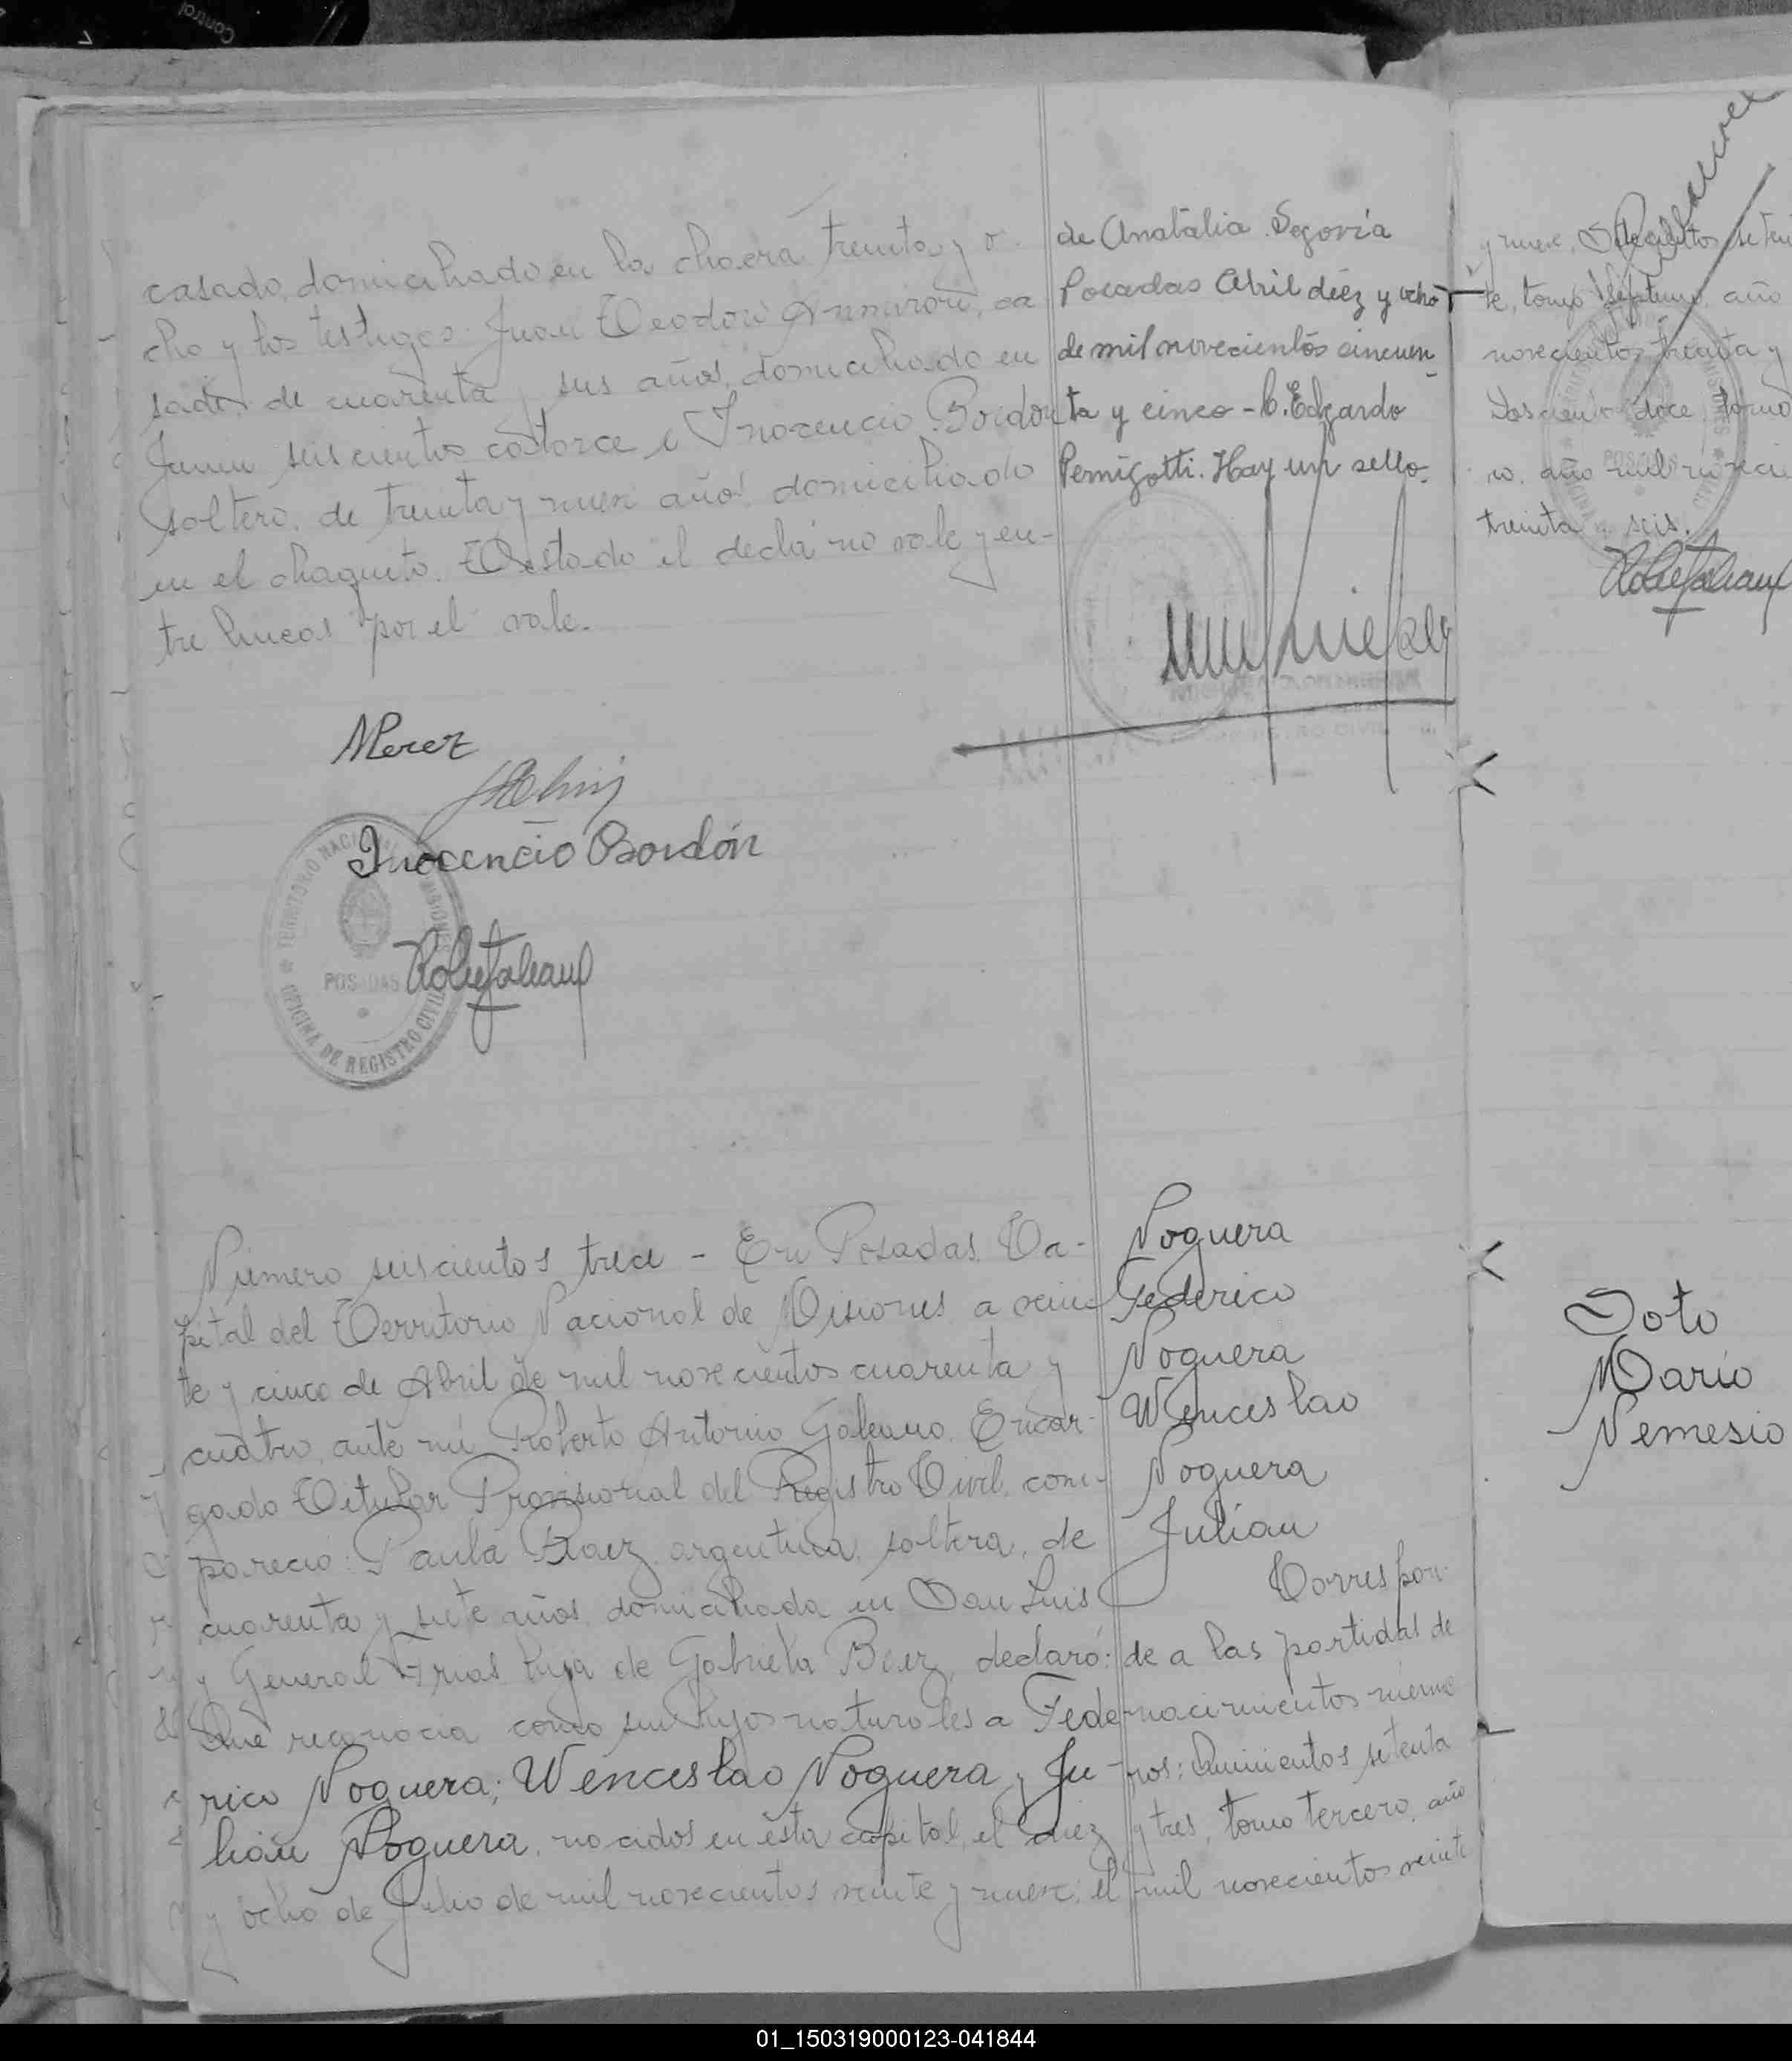 casado, domiciliado en la chacra treinta y o
cho y los testigos Juan Teodoro ca
sado de cuarenta y seis años, domiciliado en
Junin seiscientos catorce e Inocencio Bordon
soltero, de treinta y nueve años domiciliado
en el chaquito. Testado el decla no vale y en-
tre lineas por el vale.
de Anatalia Segovia
Posadas Abril diéz y ocho
de mil novecientos cincuen
ta y cinco - C. Edgardo
Pernigotti. Hay un sello.
Inocencio Bordón
TERRITORIO NACIONAL MISIONES
POSADAS
OFICINA DE REGISTRO CIVIL
Número seiscientos trece - En Posadas, Ca-
pital del Territorio Nacional de Misiones a vein-
te y cinco de Abril de mil novecientos cuarenta y
cuatro, ante mi Roberto Antonio Galeano, Encar-
gado Titular Provisional del Registro Civil, com-
parecio: Paula Baez argentina, soltera, de
cuarenta y siete años, domiciliada en San Luis
y General Frias hija de Gabriela Baez, declaró:
Que reconocia como sus hijos naturales a Fede
rico Noguera; Wenceslao Noguera y Ju-
lián Noguera, nacidos en ésta capital, el diez
y ocho de Julio de mil novecientos veinte y nueve; el
Noguera
Federico
Noguera
Wenceslao
Noguera
Julián
Correspon-
de a las partidas de
nacimientos núme
ros: Quinientos setenta
y tres, tomo tercero, año
mil novecientos veinte
y nueve, Setecientos seten
te, tomo Septimo, año
novecientos treinta y
Doscientos doce, tomo
año mil novecie
treinta y seis.
Soto
Mario
Nemesio
Control
01_150319000123-041844